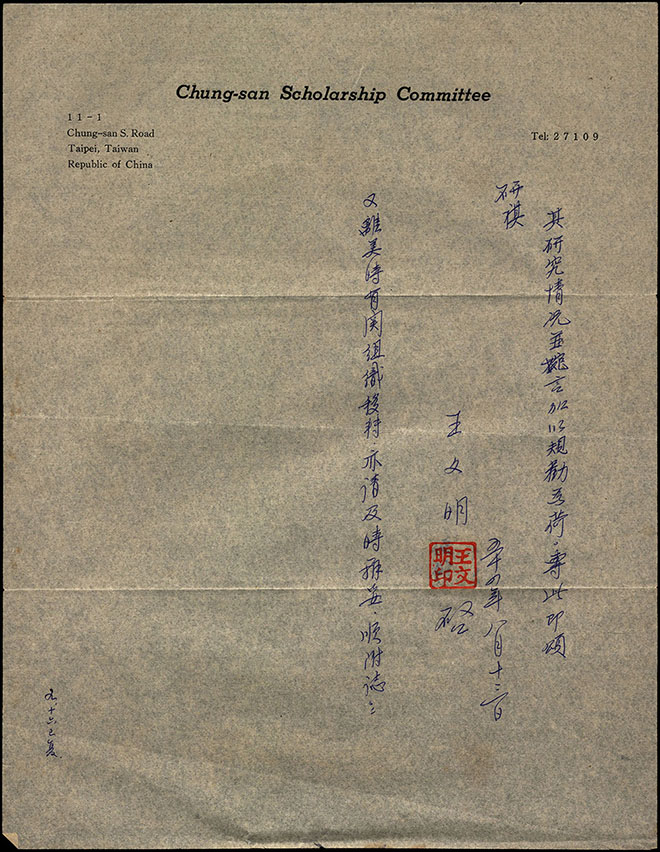 Chung-san Scholarship Committee
11-1
Chung-san S. Road
Taipei, Taiwan
Republic of China
Tel: 27109
其研究情况並婉言加以規勸爲荷。專此即頌
研祺
王文明
王文明印
啓
五十四年八月十二日
又離美時有関組織移轉，亦请及時辦妥，順附誌之
九、十六已复